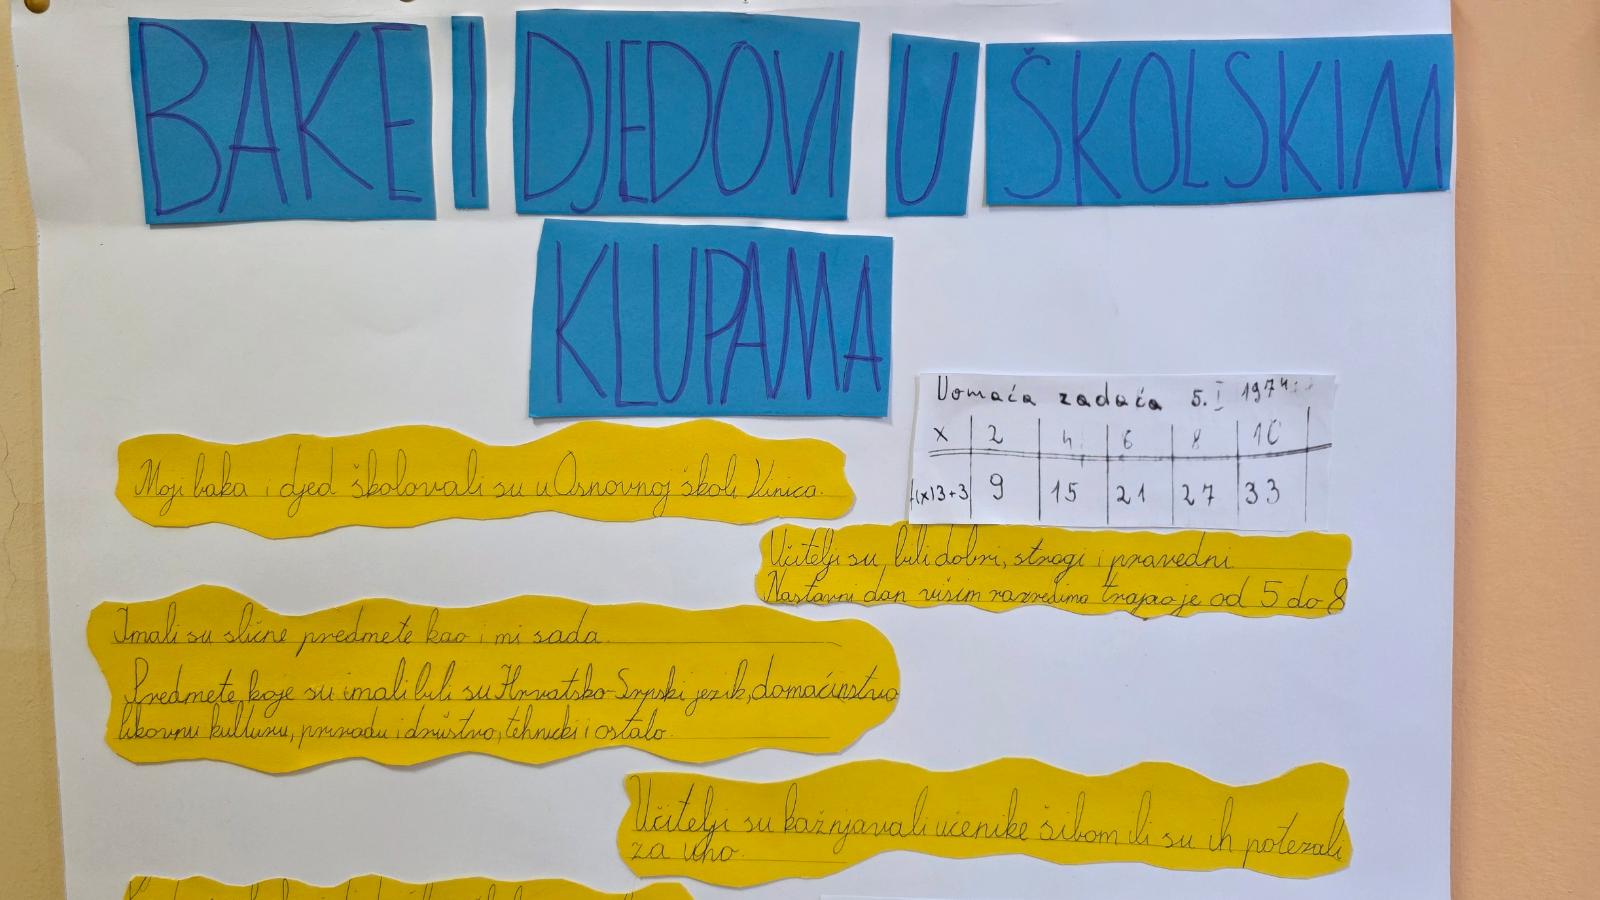 BAKE I DJEDOVI U ŠKOLSKIM
KLUPAMA
Domaća zadaća 5. I 1974.
x 2 4 6 8 10
f(x)3+3 9 15 21 27 33
Moji baka i djed školovali su u Osnovnoj školi Vinica.
Učitelji su bili dobri, strogi i pravedni
Nastavni dan višim razredima trajao je od 5 do 8
Imali su slične predmete kao i mi sada.
Predmete koje su imali bili su Hrvatsko-Srpski jezik, domaćinstvo
likovnu kulturu, prirodu i društvo, tehnički i ostalo.
Učitelji su kažnjavali učenike šibom ili su ih potezali
za uho.